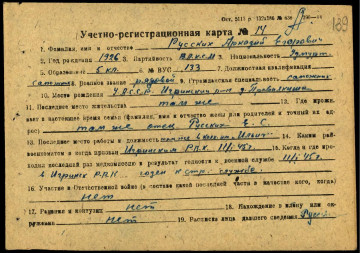 169
Учетно-регистрационная карта № 14
1. Фамилия, имя и отчество Русских Аркадий Егорович
2. Год рождения 1926 3. Партийность ВЛКСМ 4. Национальность Удмурт
5. Образование 5 кл. 6. № ВУС 133 7. Должностная квалификация
8. звание рядовой 9. Гражданская специальность
10. Место рождения У.АССР, Игринский р-н
11. Последнее место жительства там же 12. Где прожи-
вает в настоящее время семья (фамилия, имя и отчество жены или родителей и точный их ад-
рес) там же отец Русских Е. С.
13. Последнее место работы и должность
14. Каким рай-
военкоматом и когда призван Игринским РВК 1945 г. 15. Когда и где про-
ходил последний раз медкомиссию и результат годности к военной службе 1945 г.
Игринск РВК годен к стр. службе.
16. Участие в Отечественной войне (в составе какой последней части в качестве кого, когда)
нет
17. Ранения и контузии нет 18. Нахождение в плену или ок-
ружении нет 19. Расписка лица давшего сведения